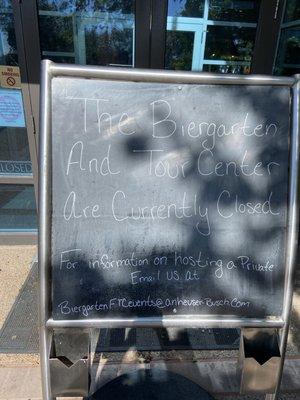 NO SMOKING
CLOSED
The Biergarten
And Tour Center
are Currently Closed
For information on hosting a Private
Email us at
BiergartenFTCevents@anheuser-Busch.Com